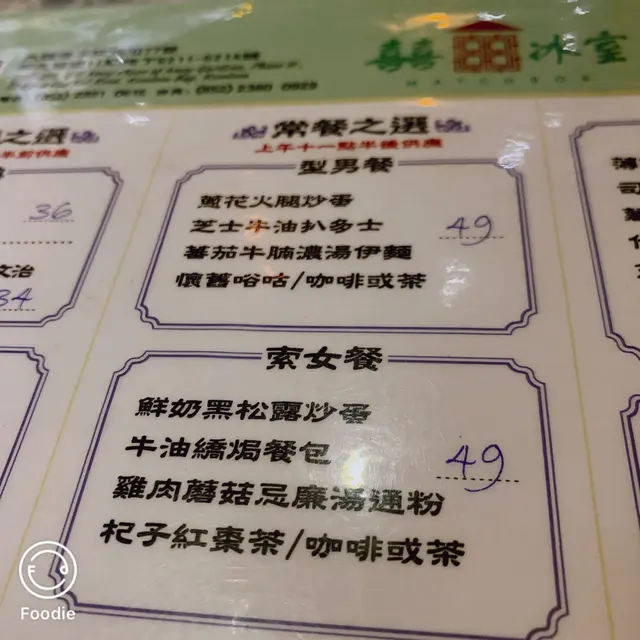 囍囍 冰室
MATCHBOX
(852) 2380 0929
之選
36
治
34
常餐之選
上午十一點半後供應
型男餐
蔥花火腿炒蛋
芝士牛油扒多士
蕃茄牛腩濃湯伊麵
懷舊唂咕/咖啡或茶
49
索女餐
鮮奶黑松露炒蛋
牛油繑焗餐包
雞肉蘑菇忌廉湯通粉
杞子紅棗茶/咖啡或茶
49
薄
司
Foodie